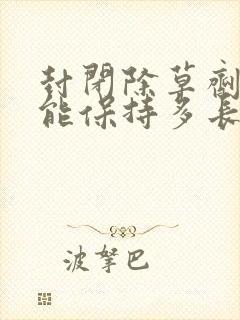 封閉除草劑
能保持多長
波拏巴